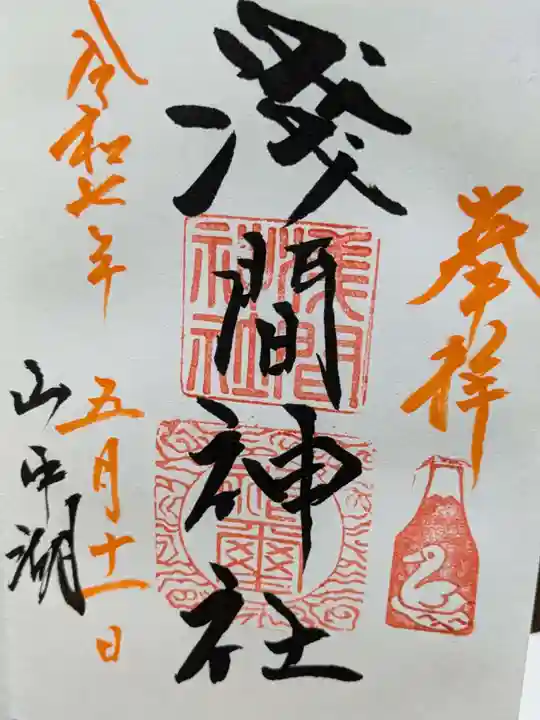 奉拝
淺間神社
淺間神社
令和七年
五月十一日
山中湖